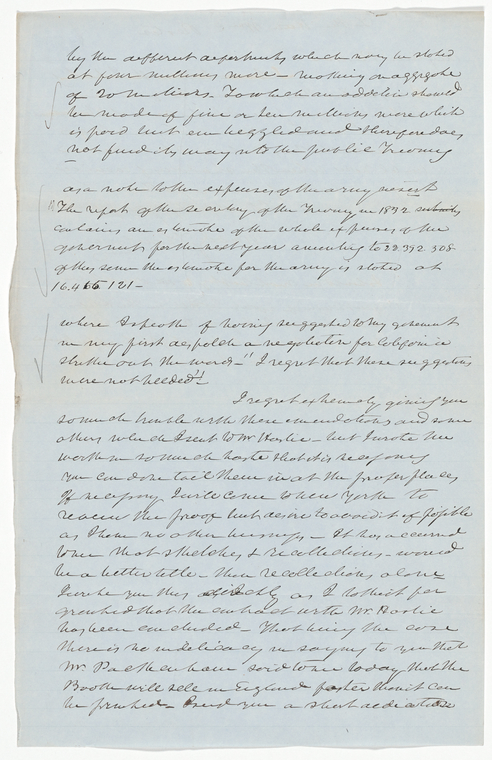 by the different departments which may be stated
at four millions more – making an aggregate
of 20 millions. To which an addition should
be made of five or ten millions more which
is paid but smuggled and therefore does
not find its way into the public Treasury
as a note to the expenses of the army
The report of the Secretary of the Treasury in 1832
contains an estimate of the whole expenses of the
government for the next year amounting to 22.392.508
of this sum the estimate for the army is stated at
16.466 121 –
where I speak of having suggested to my government
in my first despatch a negotiation for California
strike out the words – "I regret that these suggestions
were not heeded"
I regret extremely giving you
so much trouble with these emendations and some
others which I sent to Mr – but I wrote the
work in so much haste that it is necessary
you can dove tail them in at the proper places
If necessary I will come to New York to
revise the proof but desire to avoid it if possible
as I have no other business – It has occurred
to me that sketches & recollections – would
be a better title – than recollections alone
I write you thus directly as I take it for
granted that the contract with Mr
has been concluded – That being the case
there is no indelicacy in saying to you that
Mr. Packenham said to me today that the
Book will sell in England faster than it can
be printed – I send you a short dedication